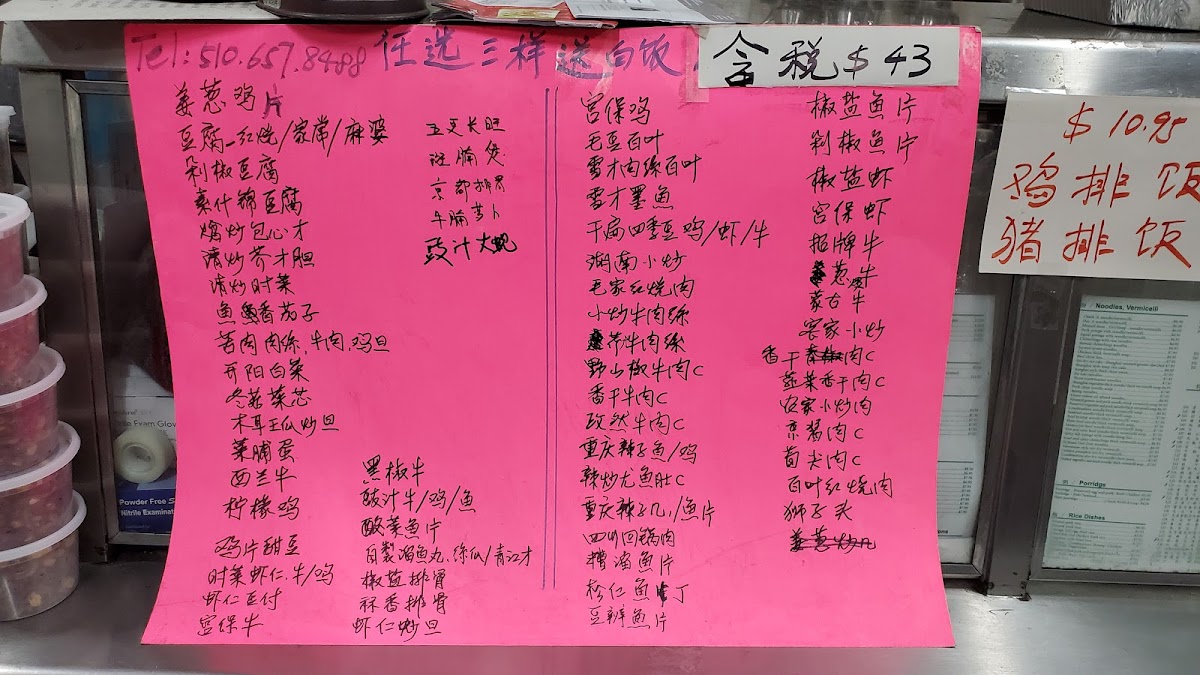 Tel: 510.657.8488 任选三样送白饭.
含税 $43
姜葱鸡片
豆腐-红烧/家常/麻婆
剁椒豆腐
素什锦豆腐
炝炒包心才
清炒芥才胆
清炒时菜
鱼香茄子
苦肉肉絲,牛肉,鸡旦
开阳白菜
冬菇菜芯
木耳王瓜炒旦
菜脯蛋
西兰牛
柠檬鸡
鸡片甜豆
时菜虾仁.牛/鸡
虾仁豆付
宫保牛
五更长旺
斑腩煲
京都排骨
牛腩萝卜
豉汁大蚬
黑椒牛
豉汁牛/鸡/鱼
酸菜鱼片
自製溜鱼丸.絲瓜/青江才
椒盐排骨
蒜香排骨
虾仁炒旦
宫保鸡
毛豆百叶
雪才肉絲百叶
雪才墨魚
干扁四季豆鸡/虾/牛
湖南小炒
毛家红烧肉
小炒牛肉絲
芹牛肉絲
野山椒牛肉C
香干牛肉C
孜然牛肉C
重庆辣子鱼/鸡
辣炒尤鱼肚C
重庆辣子几/鱼片
四川回锅肉
糟溜魚片
松仁魚丁
豆辦魚片
椒盐鱼片
剁椒鱼片
椒盐虾
宫保虾
招牌牛
葱牛
蒙古牛
客家小炒
香干肉C
韭菜香干肉C
农家小炒肉
京酱肉C
笋尖肉C
百叶红烧肉
狮子头
姜葱炒几
$10.95
鸡排饭
猪排饭
Noodles, Vermicelli
Porridge
Rice Dishes
Exam Glov
Powder Free
Nitrile Examinat